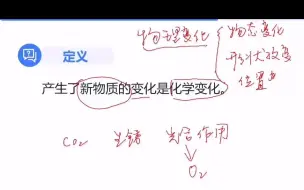 物理变化
物态变化
形状改变
位置
定义
产生了新物质的变化是化学变化。
CO₂ 生锈 光合作用
O₂